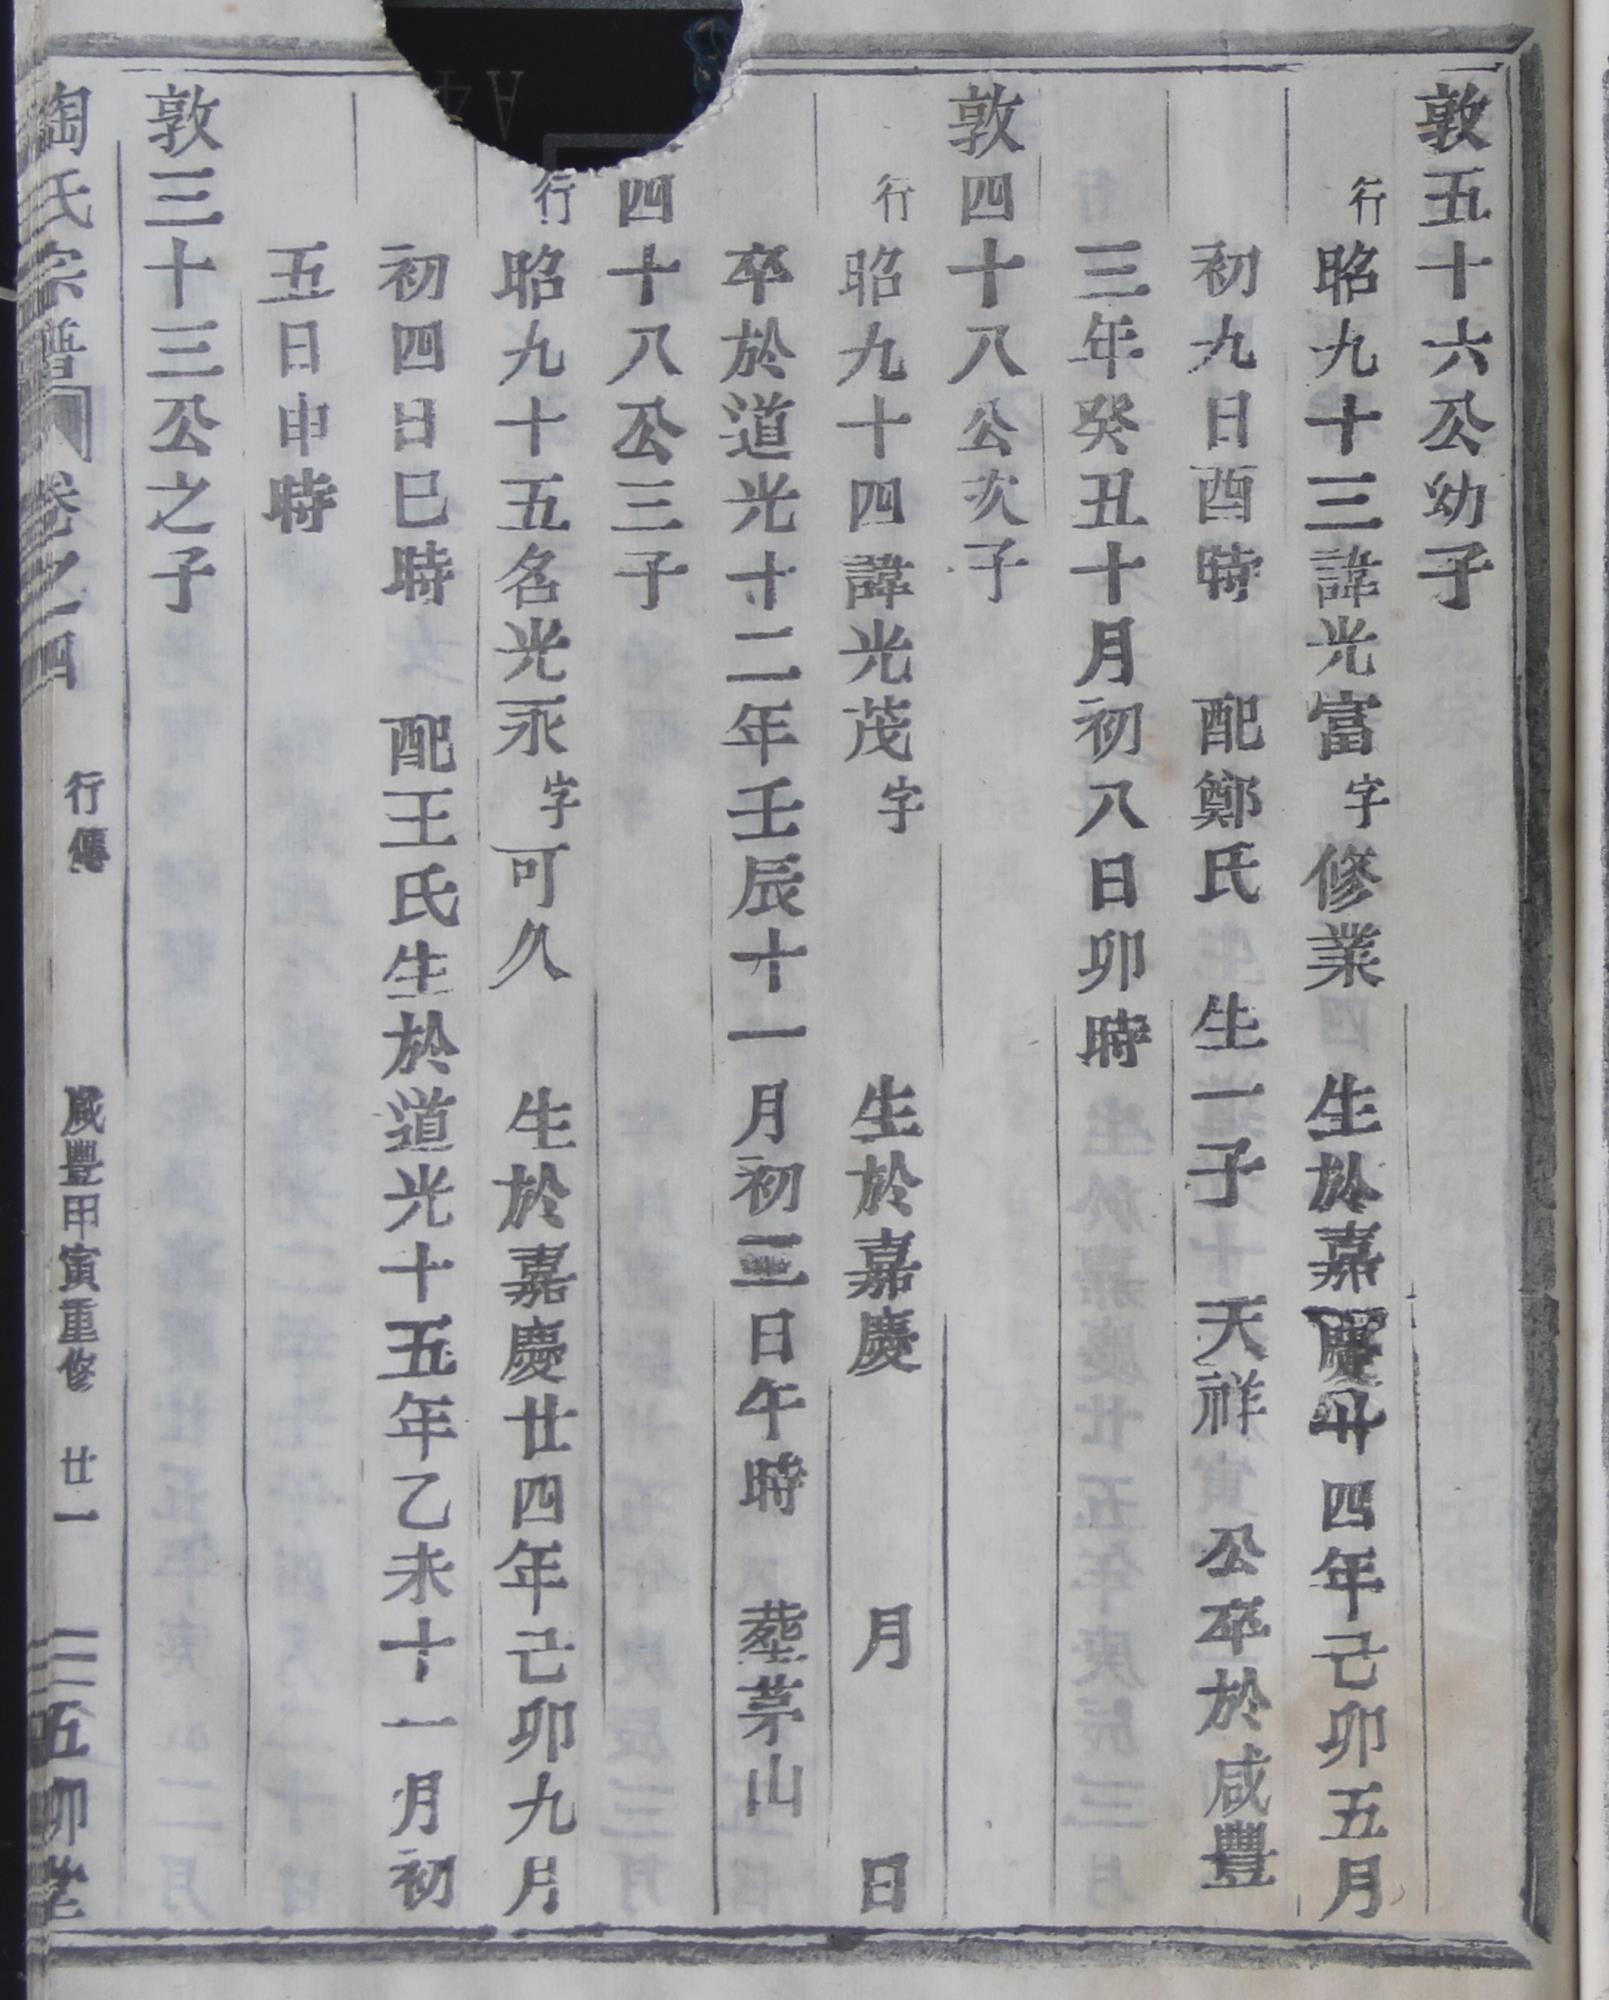 敦五十六公幼子
行昭九十三諱光富字修業　生於嘉慶廿四年己卯五月
初九日酉時　配鄭氏　生一子　天祥　公卒於咸豐
三年癸丑十月初八日卯時
敦四十八公次子
行昭九十四諱光茂字　生於嘉慶　月　日
卒於道光十二年壬辰十一月初三日午時　塟茅山
四十八公三子
行昭九十五名光永字可久　生於嘉慶廿四年己卯九月
初四日巳時　配王氏生於道光十五年乙未十一月初
五日申時
敦三十三公之子
陶氏宗譜　卷之十四　行傳　咸豐甲寅重修　廿一　五柳堂